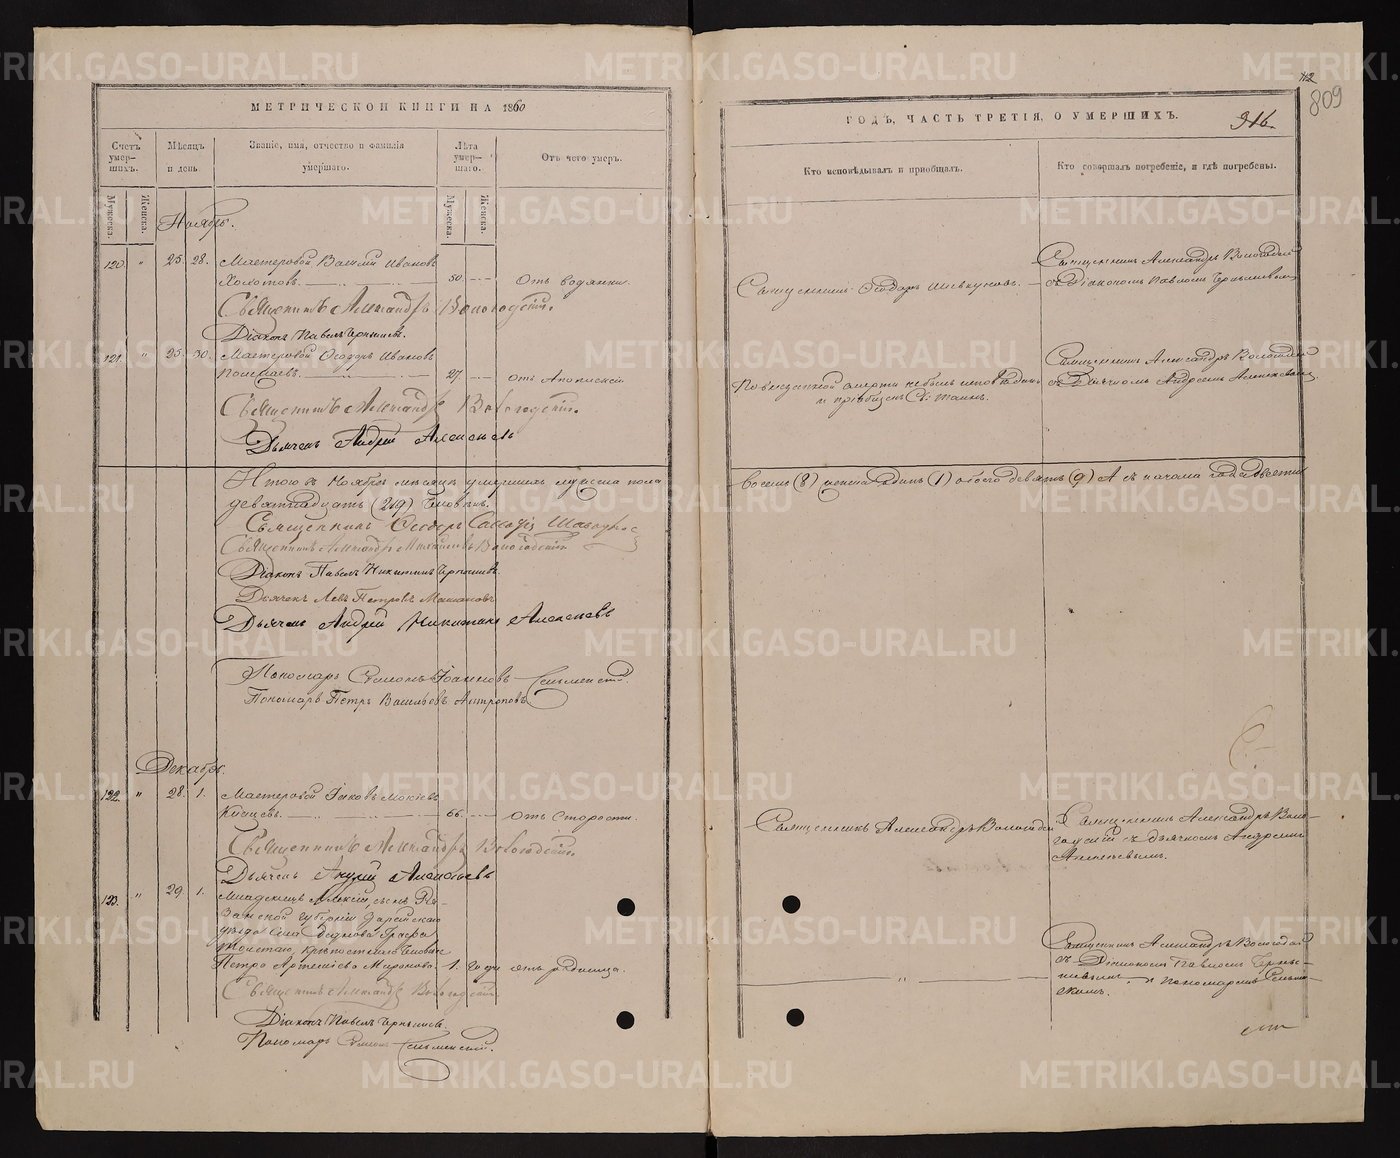 МЕТРИЧЕСКОЙ КНИГИ НА 1860
Счетъ умер-шихъ.
Мѣсяцъ и день
Званіе, имя, отчество и фамилія умершаго.
Лѣта умер-шаго.
Отъ чего умеръ.
Мужеска. Женска. Мужеска. Женска.
Ноябрь.
120. " 25. 28. Мастеровой Василій Ивановъ
Холотовъ. 50. Отъ водянки.
Священникъ Александръ Вологодскій.
Діаконъ Павелъ Чернышевъ.
121. " 25. 30. Мастеровой Ѳеодоръ Ивановъ
27. отъ Апоплексіи
Священникъ Александръ Вологодскій.
Дьячекъ Андрей Алексѣевъ
Итого въ Ноябрѣ мѣсяцѣ умершихъ мужеска пола
девятнадцать (219) Человѣкъ.
Священникъ Ѳеодоръ
Священникъ Александръ Михайловъ Вологодскій
Діаконъ Павелъ Никитинъ Чернышевъ.
Дьячекъ Левъ Петровъ
Дьячекъ Андрей Никитинъ Алексѣевъ
Пономарь Симеонъ Іоанновъ Сельменскій.
Пономарь Петръ Васильевъ Антроповъ
Декабрь.
122. " 28. 1. Мастеровой Іаковъ Моисѣевъ
66. отъ Старости.
Священникъ Александръ Вологодскій.
Дьячекъ Андрей Алексѣевъ
123. " 29. 1. Младенецъ Алексій, сынъ Ря-
занской губерніи Зарайскаго
уѣзда Села Графа
Толстаго, крѣпостнаго Человѣка
Петра Артемьева Миронова. 1. года отъ родимца.
Священникъ Александръ Вологодскій
Діаконъ Павелъ Чернышевъ
Пономарь Симеонъ Сельменскій.
ГОДЪ, ЧАСТЬ ТРЕТІЯ, О УМЕРШИХЪ.
316.
809
Кто исповѣдывалъ и пріобщалъ.
Кто совершалъ погребеніе, и гдѣ погребены.
Священникъ Ѳеодоръ Шевкуновъ.
Священникъ Александръ Вологодскій
съ Діакономъ Павломъ Чернышевымъ.
По внезапной смерти не былъ исповѣданъ
и пріобщенъ Св. таинъ.
Священникъ Александръ Вологодскій
съ Дьячкомъ Андреемъ Алексѣевымъ
восемь (8) женска одинъ (1) обоего девять (9) А съ начала года двѣсти
Священникъ Александръ Вологодскій
Священникъ Александръ Воло-
годскій съ дьячкомъ Андреемъ
Алексѣевымъ.
"
Священникъ Александръ Вологодскій
съ Діакономъ Павломъ Черны-
шевымъ и пономаремъ Сельмен-
скимъ.
METRIKI.GASO-URAL.RU